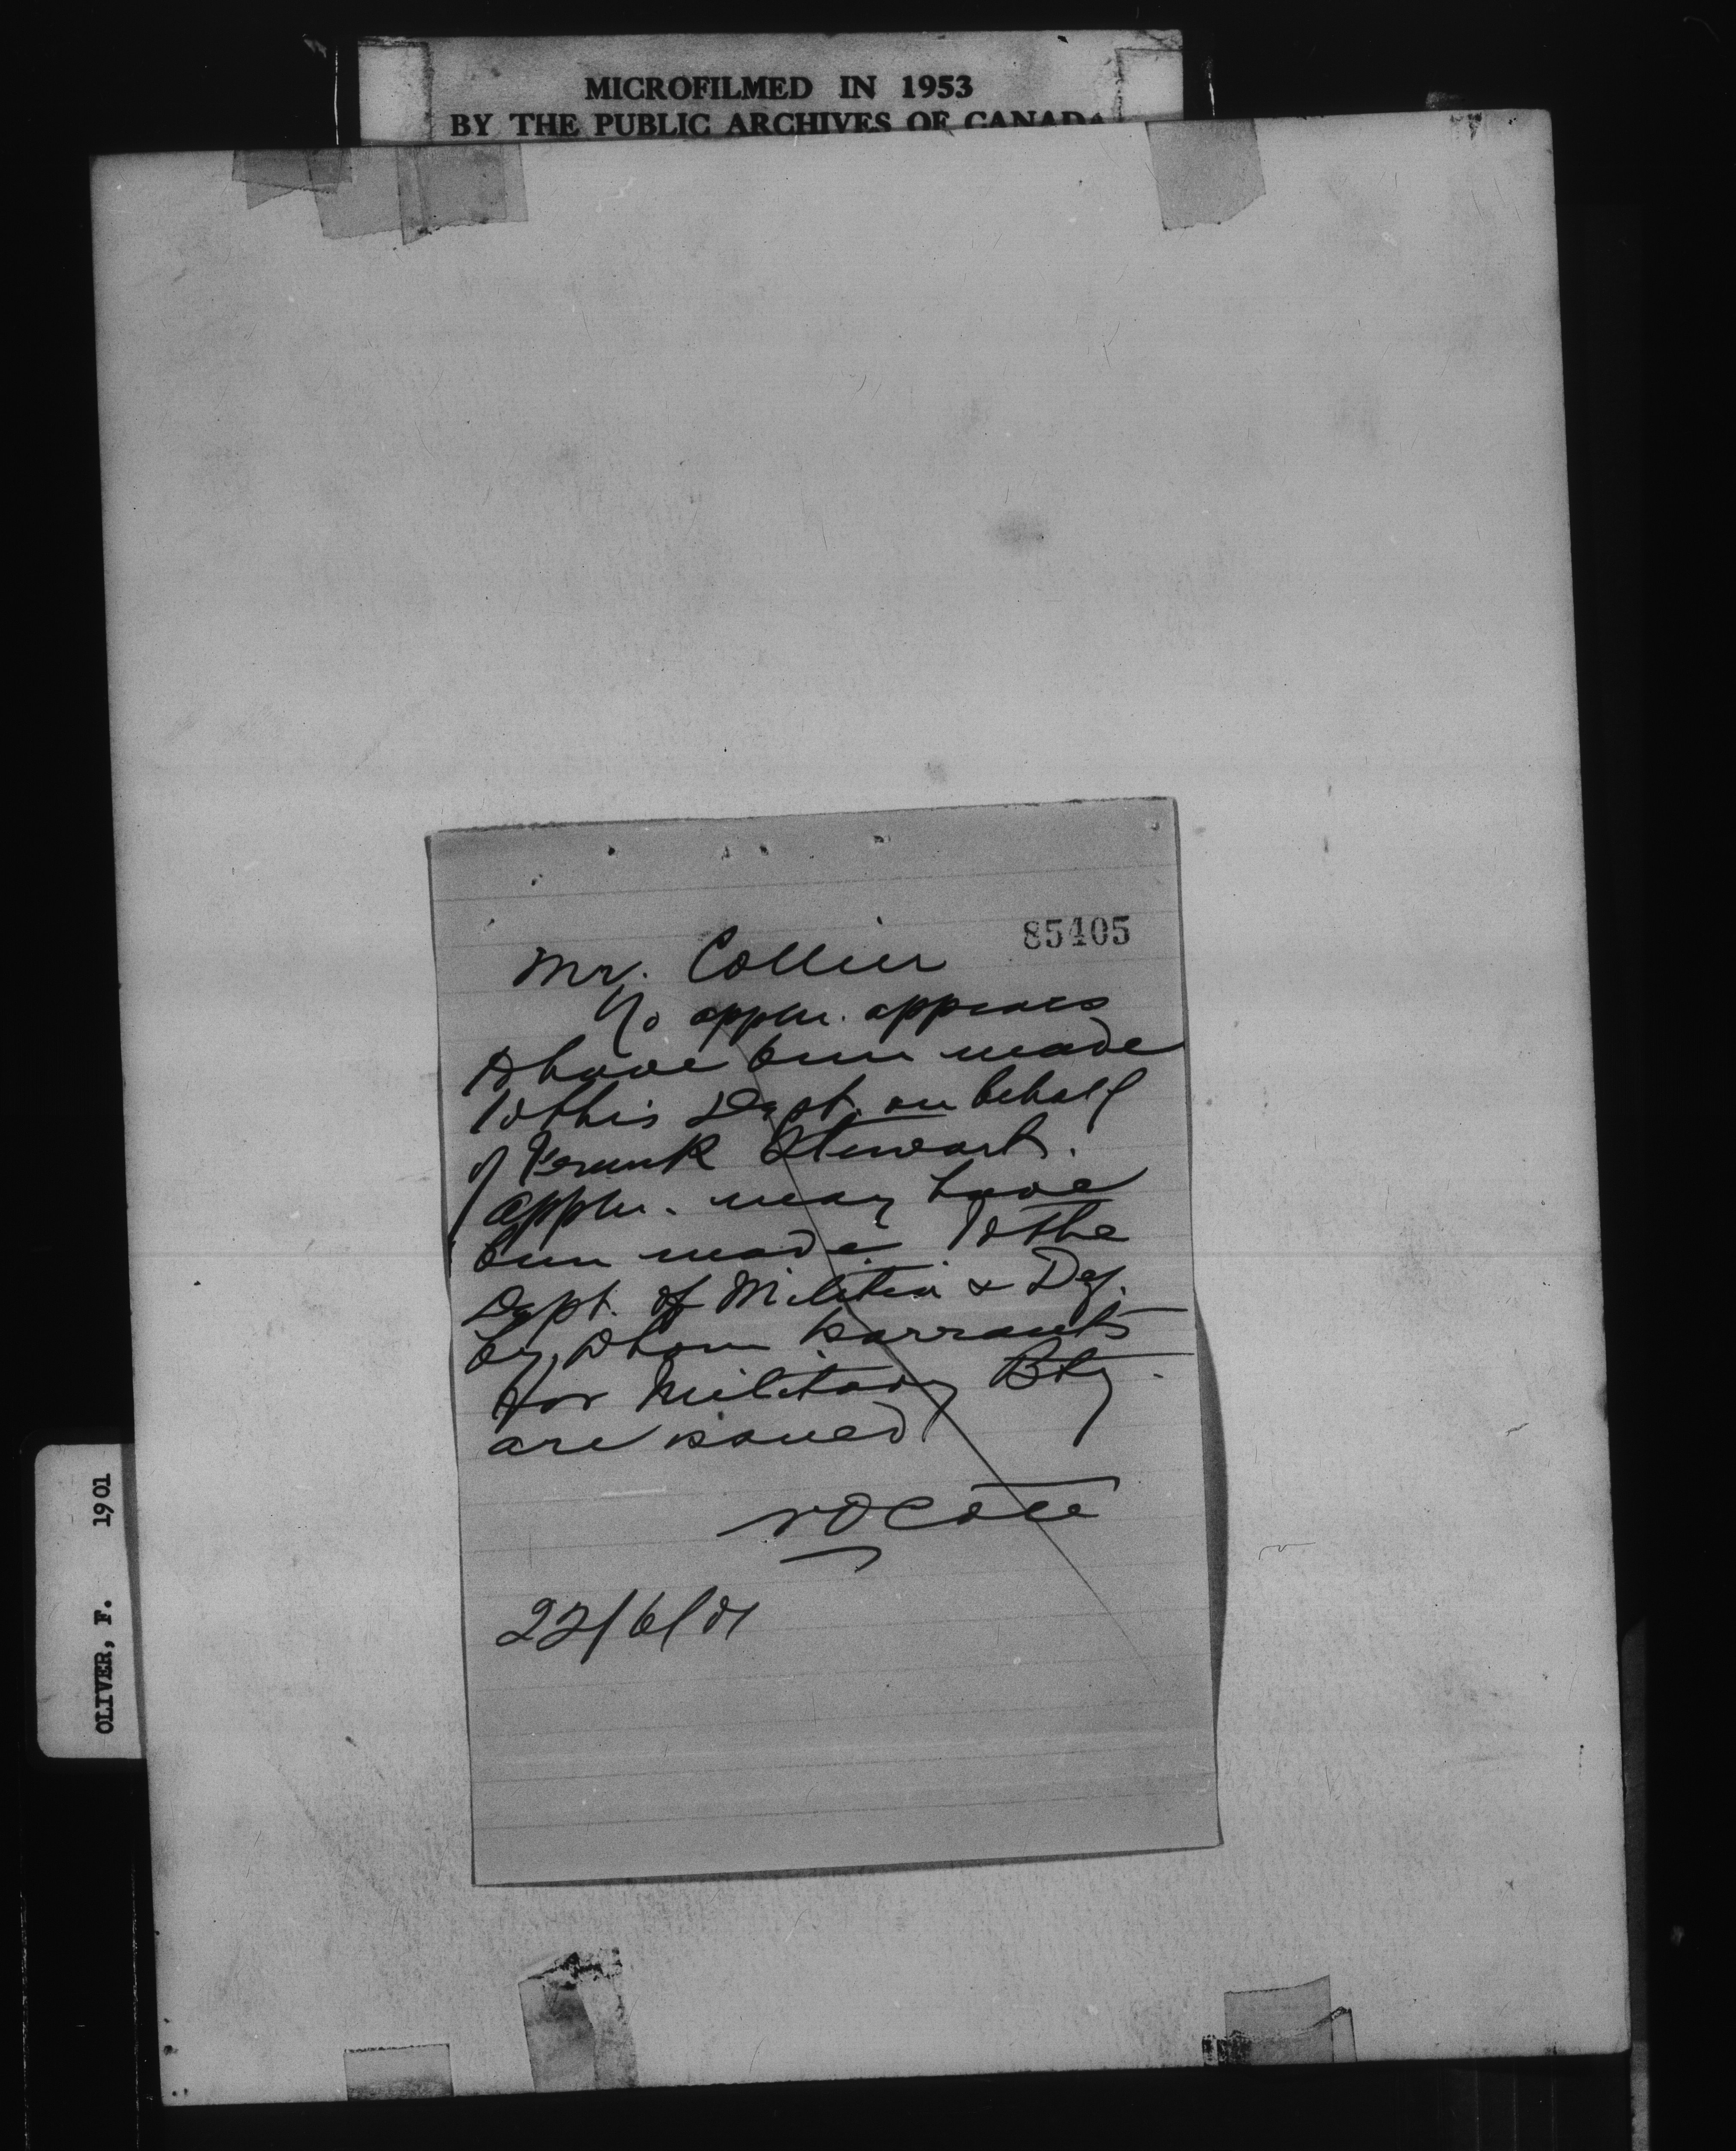 MICROFILMED IN 1953
BY THE PUBLIC ARCHIVES OF CANADA
85405
Mr. Collier
No appln. appears
to have been made
to this Dept. on behalf
of Frank Stewart.
appln. may have
been made to the
Dept. of Militia & Def.
by whom warrants
for Military Bty.
are issued
NOCote
22/6/01
OLIVER, F. 1901